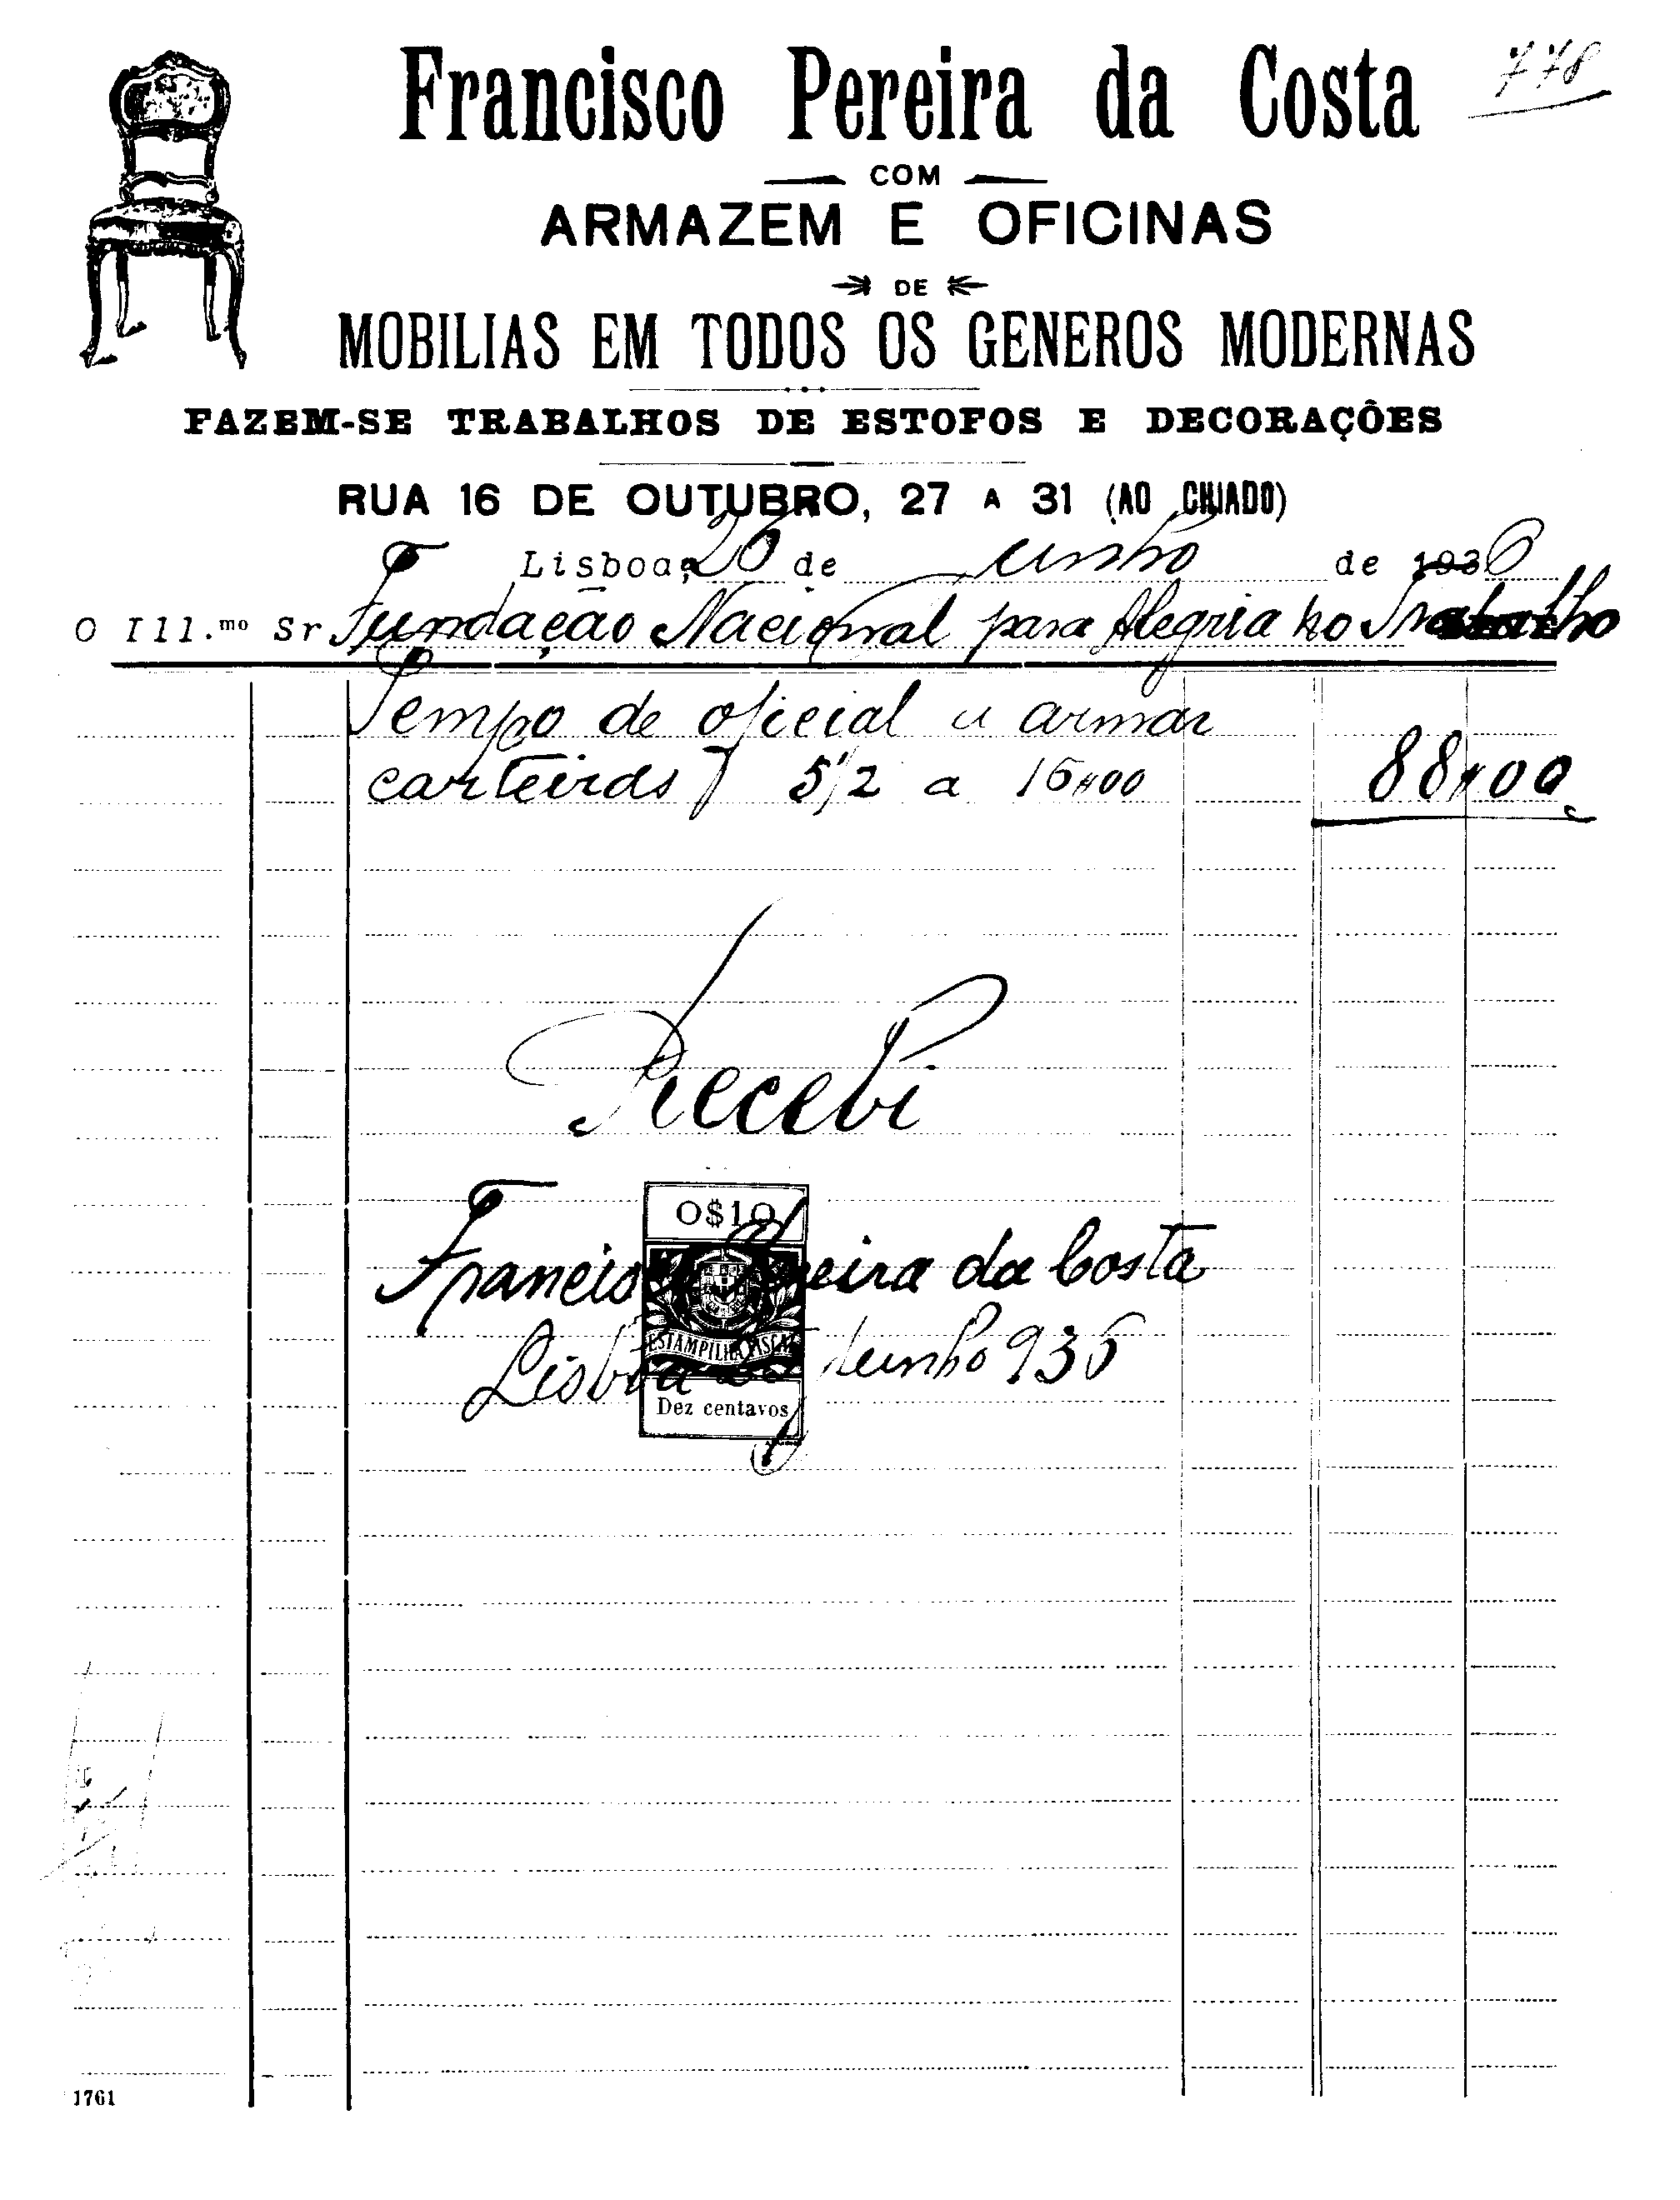 Francisco Pereira da Costa
778
COM
ARMAZEM E OFICINAS
DE
MOBILIAS EM TODOS OS GENEROS MODERNAS
FAZEM-SE TRABALHOS DE ESTOFOS E DECORAÇÔES
RUA 16 DE OUTUBRO, 27 A 31 (AO CHIADO)
Lisboa, 26 de Junho de 1936
O Ill.mo Sr Fundação Nacional para Alegria no Trabalho
Tempo de oficial a armar
carteiras 5 1/2 a 16$00 88$00
Recebi
O$10
Francisco Pereira da Costa
ESTAMPILHA FISCAL
Lisboa Junho 936
Dez centavos
1761